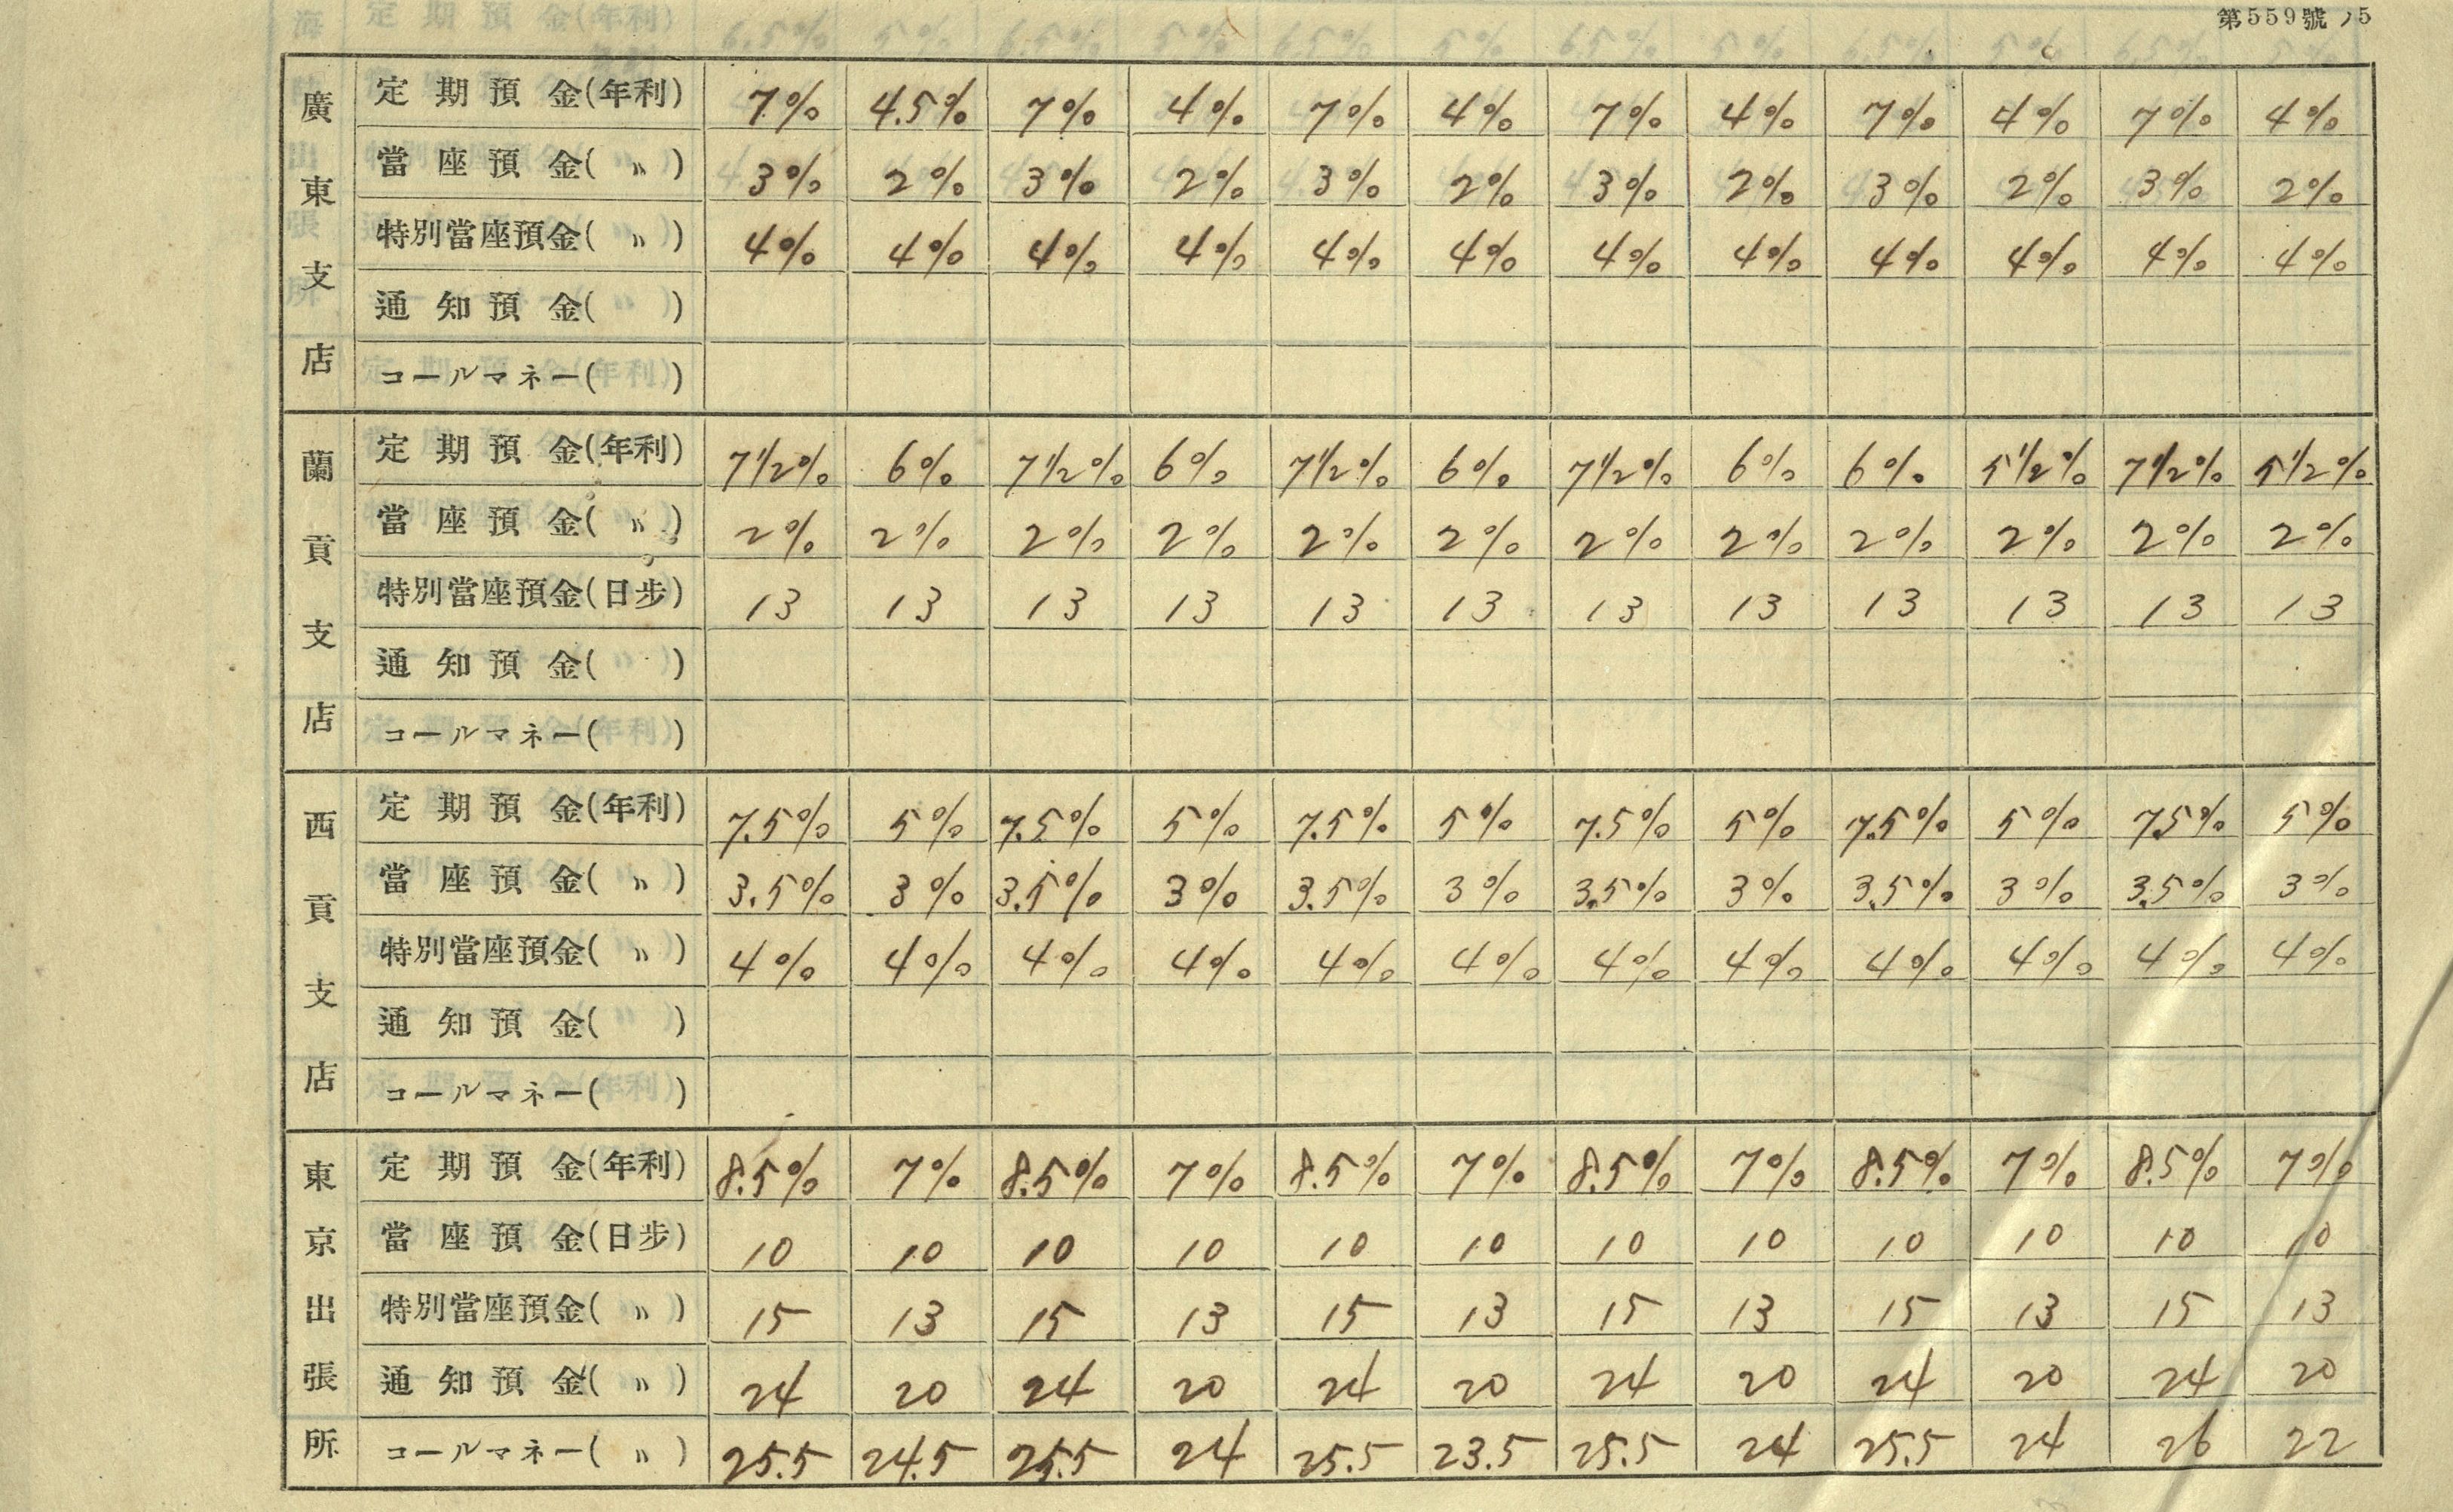 第559號ノ5
廣東支店
定期預金(年利) 7% 4.5% 7% 4% 7% 4% 7% 4% 7% 4% 7% 4%
當座預金( 〃 ) 3% 2% 3% 2% 3% 2% 3% 2% 3% 2% 3% 2%
特別當座預金( 〃 ) 4% 4% 4% 4% 4% 4% 4% 4% 4% 4% 4% 4%
通知預金( )
コールマネー( )
蘭貢支店
定期預金(年利) 7 1/2% 6% 7 1/2% 6% 7 1/2% 6% 7 1/2% 6% 6% 5 1/2% 7 1/2% 5 1/2%
當座預金( 〃 ) 2% 2% 2% 2% 2% 2% 2% 2% 2% 2% 2% 2%
特別當座預金(日步) 13 13 13 13 13 13 13 13 13 13 13 13
通知預金( )
コールマネー( )
西貢支店
定期預金(年利) 7.5% 5% 7.5% 5% 7.5% 5% 7.5% 5% 7.5% 5% 7.5% 5%
當座預金( 〃 ) 3.5% 3% 3.5% 3% 3.5% 3% 3.5% 3% 3.5% 3% 3.5% 3%
特別當座預金( 〃 ) 4% 4% 4% 4% 4% 4% 4% 4% 4% 4% 4% 4%
通知預金( )
コールマネー( )
東京出張所
定期預金(年利) 8.5% 7% 8.5% 7% 8.5% 7% 8.5% 7% 8.5% 7% 8.5% 7%
當座預金(日步) 10 10 10 10 10 10 10 10 10 10 10 10
特別當座預金( 〃 ) 15 13 15 13 15 13 15 13 15 13 15 13
通知預金( 〃 ) 24 20 24 20 24 20 24 20 24 20 24 20
コールマネー( 〃 ) 25.5 24.5 25.5 24 25.5 23.5 25.5 24 25.5 24 26 22